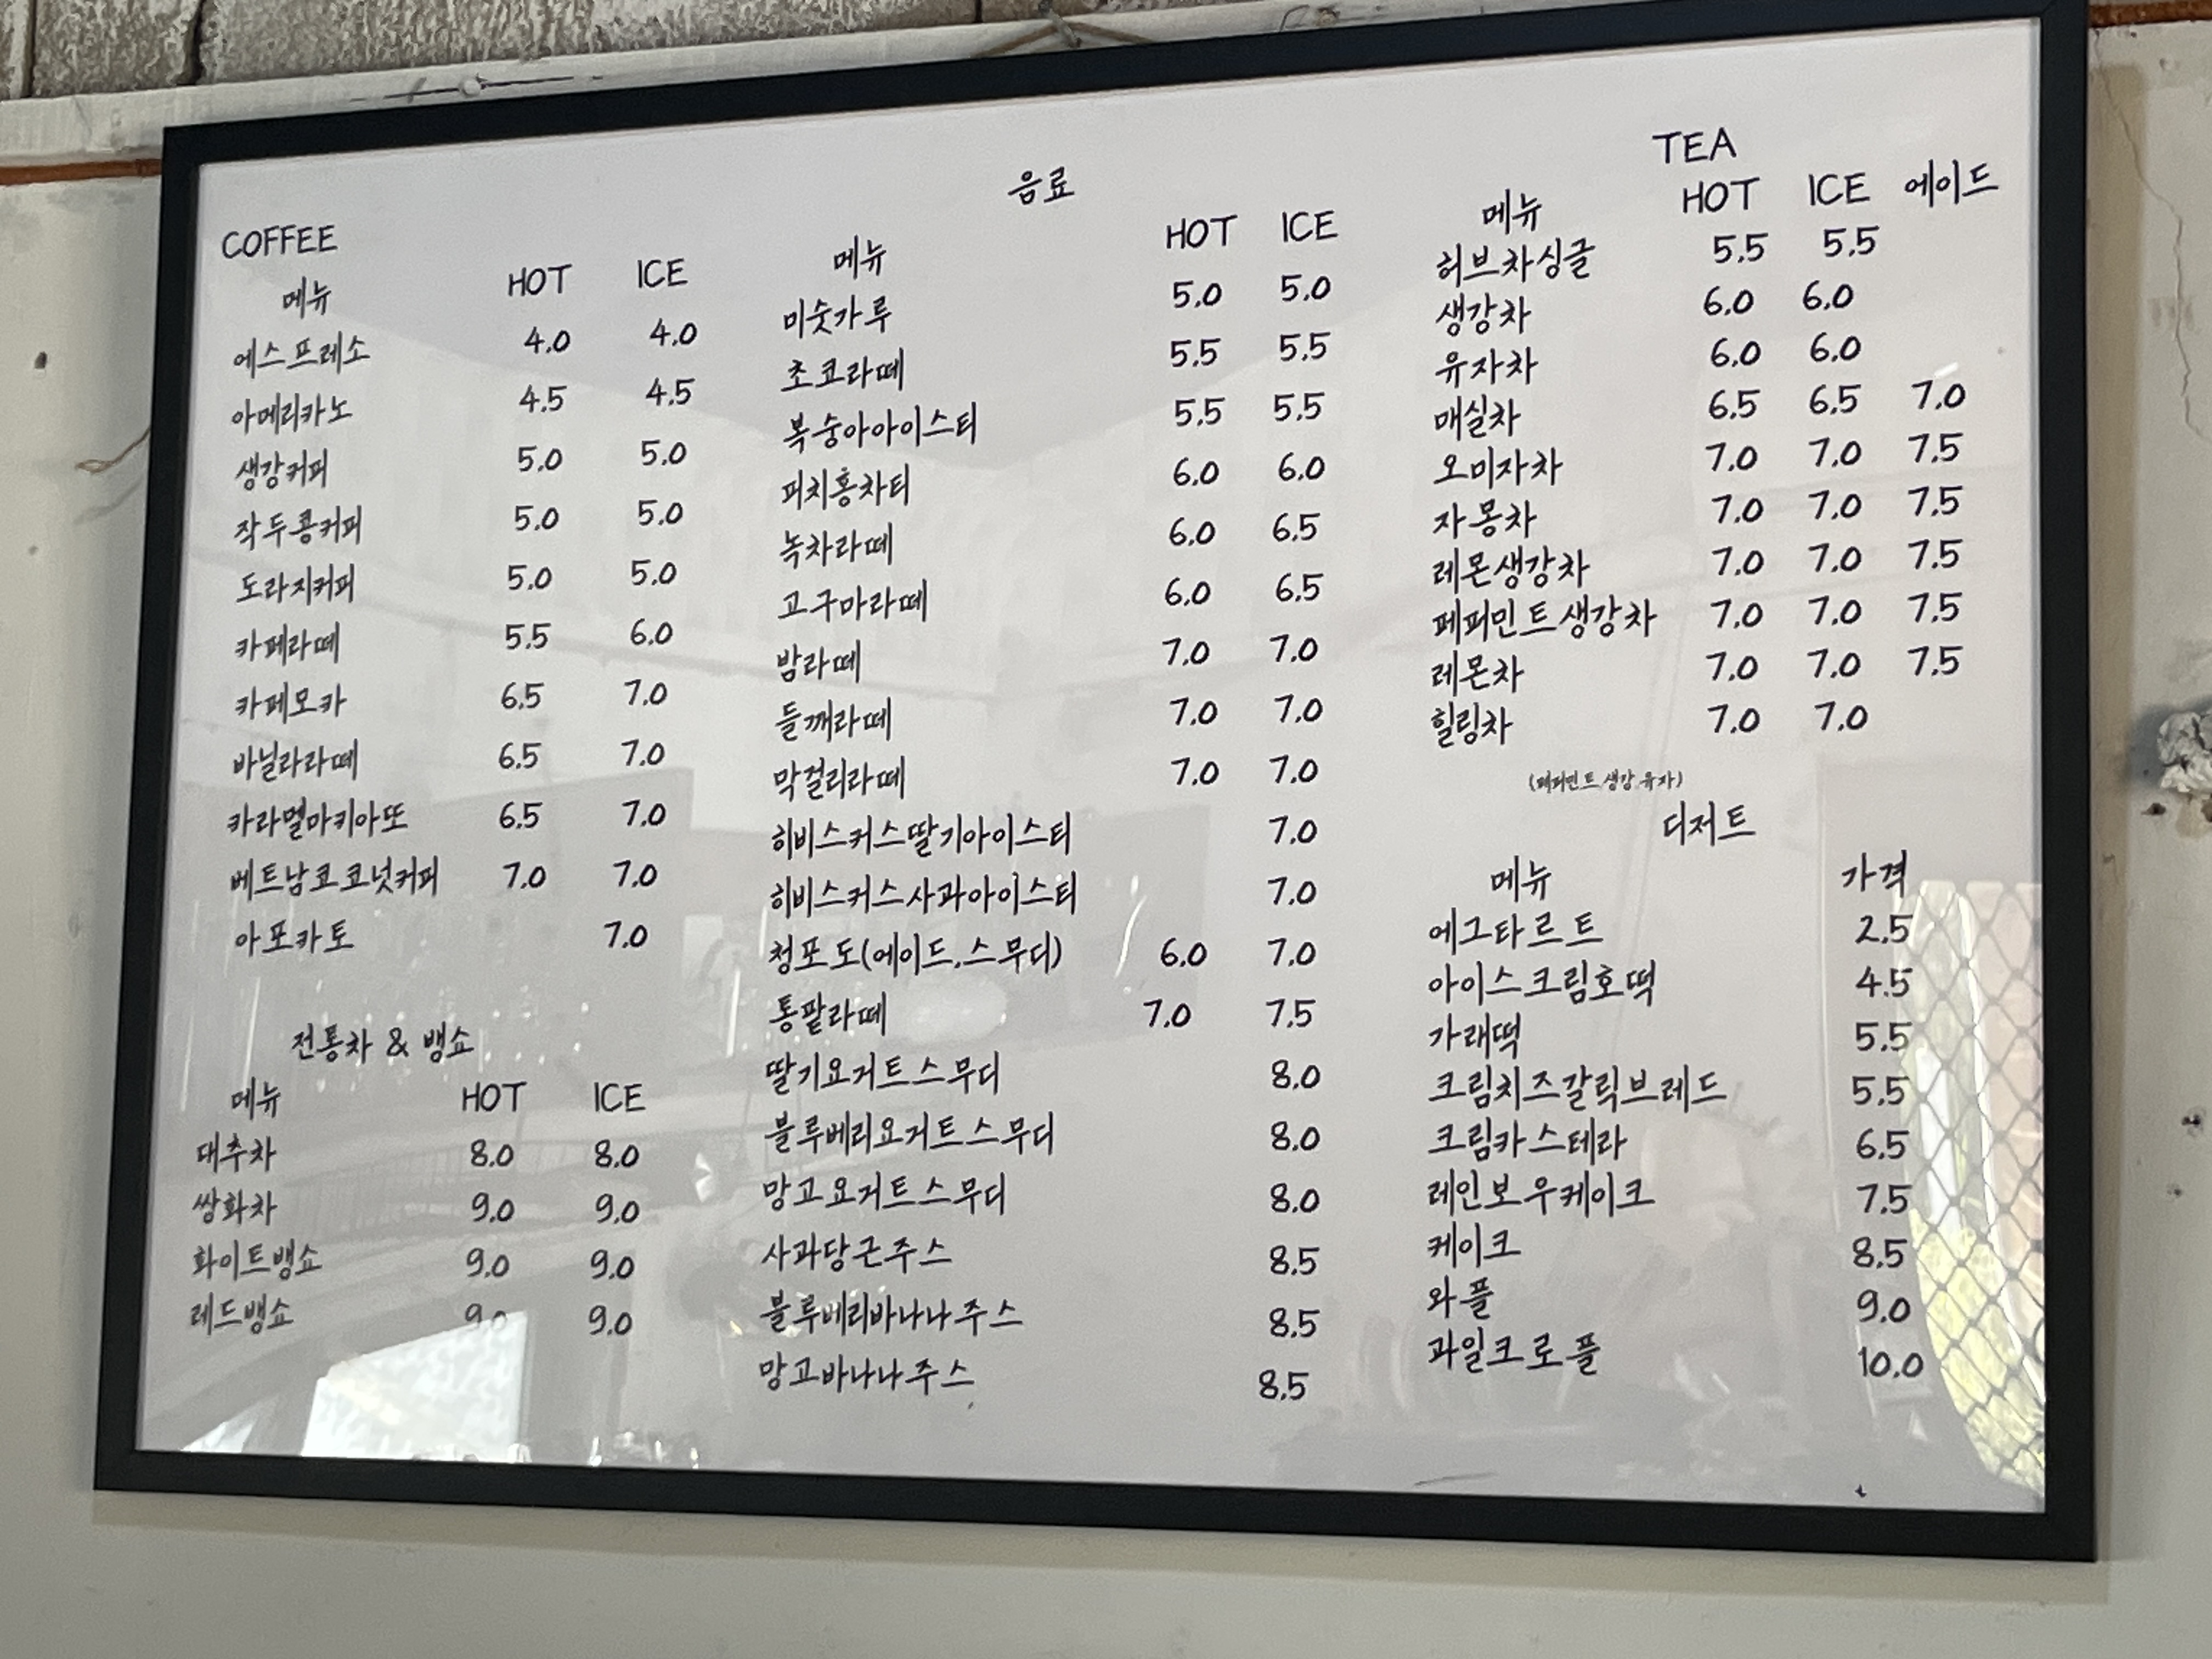 COFFEE
메뉴 HOT ICE
에스프레소 4.0 4.0
아메리카노 4.5 4.5
생강커피 5.0 5.0
작두콩커피 5.0 5.0
도라지커피 5.0 5.0
카페라떼 5.5 6.0
카페모카 6.5 7.0
바닐라라떼 6.5 7.0
카라멜마키아또 6.5 7.0
베트남코코넛커피 7.0 7.0
아포카토 7.0
전통차 & 뱅쇼
메뉴 HOT ICE
대추차 8.0 8.0
쌍화차 9.0 9.0
화이트뱅쇼 9.0 9.0
레드뱅쇼 9.0 9.0
음료
메뉴 HOT ICE
미숫가루 5.0 5.0
초코라떼 5.5 5.5
복숭아아이스티 5.5 5.5
피치홍차티 6.0 6.0
녹차라떼 6.0 6.5
고구마라떼 6.0 6.5
밤라떼 7.0 7.0
들깨라떼 7.0 7.0
막걸리라떼 7.0 7.0
히비스커스딸기아이스티 7.0
히비스커스사과아이스티 7.0
청포도(에이드.스무디) 6.0 7.0
통팥라떼 7.0 7.5
딸기요거트스무디 8.0
블루베리요거트스무디 8.0
망고요거트스무디 8.0
사과당근주스 8.5
블루베리바나나주스 8.5
망고바나나주스 8.5
TEA
메뉴 HOT ICE 에이드
허브차싱글 5.5 5.5
생강차 6.0 6.0
유자차 6.0 6.0
매실차 6.5 6.5 7.0
오미자차 7.0 7.0 7.5
자몽차 7.0 7.0 7.5
레몬생강차 7.0 7.0 7.5
페퍼민트생강차 7.0 7.0 7.5
레몬차 7.0 7.0 7.5
힐링차 7.0 7.0
(페퍼민트 생강 유자)
디저트
메뉴 가격
에그타르트 2.5
아이스크림호떡 4.5
가래떡 5.5
크림치즈갈릭브레드 5.5
크림카스테라 6.5
레인보우케이크 7.5
케이크 8.5
와플 9.0
과일크로플 10.0